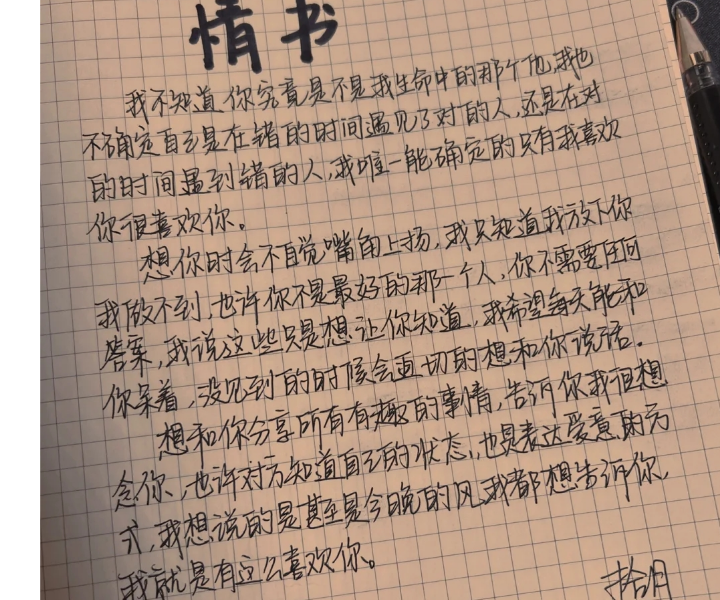 情书
我不知道你究竟是不是我生命中的那个他,我也
不确定自己是在错的时间遇见了对的人,还是在对
的时间遇到错的人,我唯一能确定的只有我喜欢
你很喜欢你。
想你时会不自觉嘴角上扬,我只知道我放下你
我做不到,也许你不是最好的那一个人,你不需要任何
答案,我说这些只是想让你知道,我希望每天能和
你呆着,没见到的时候会迫切的想和你说话.
想和你分享所有有趣的事情,告诉你我很想
念你,也许对方知道自己的状态,也是表达爱意的方
式,我想说的是甚至是今晚的风,我都想告诉你,
我就是有这么喜欢你。
拾月